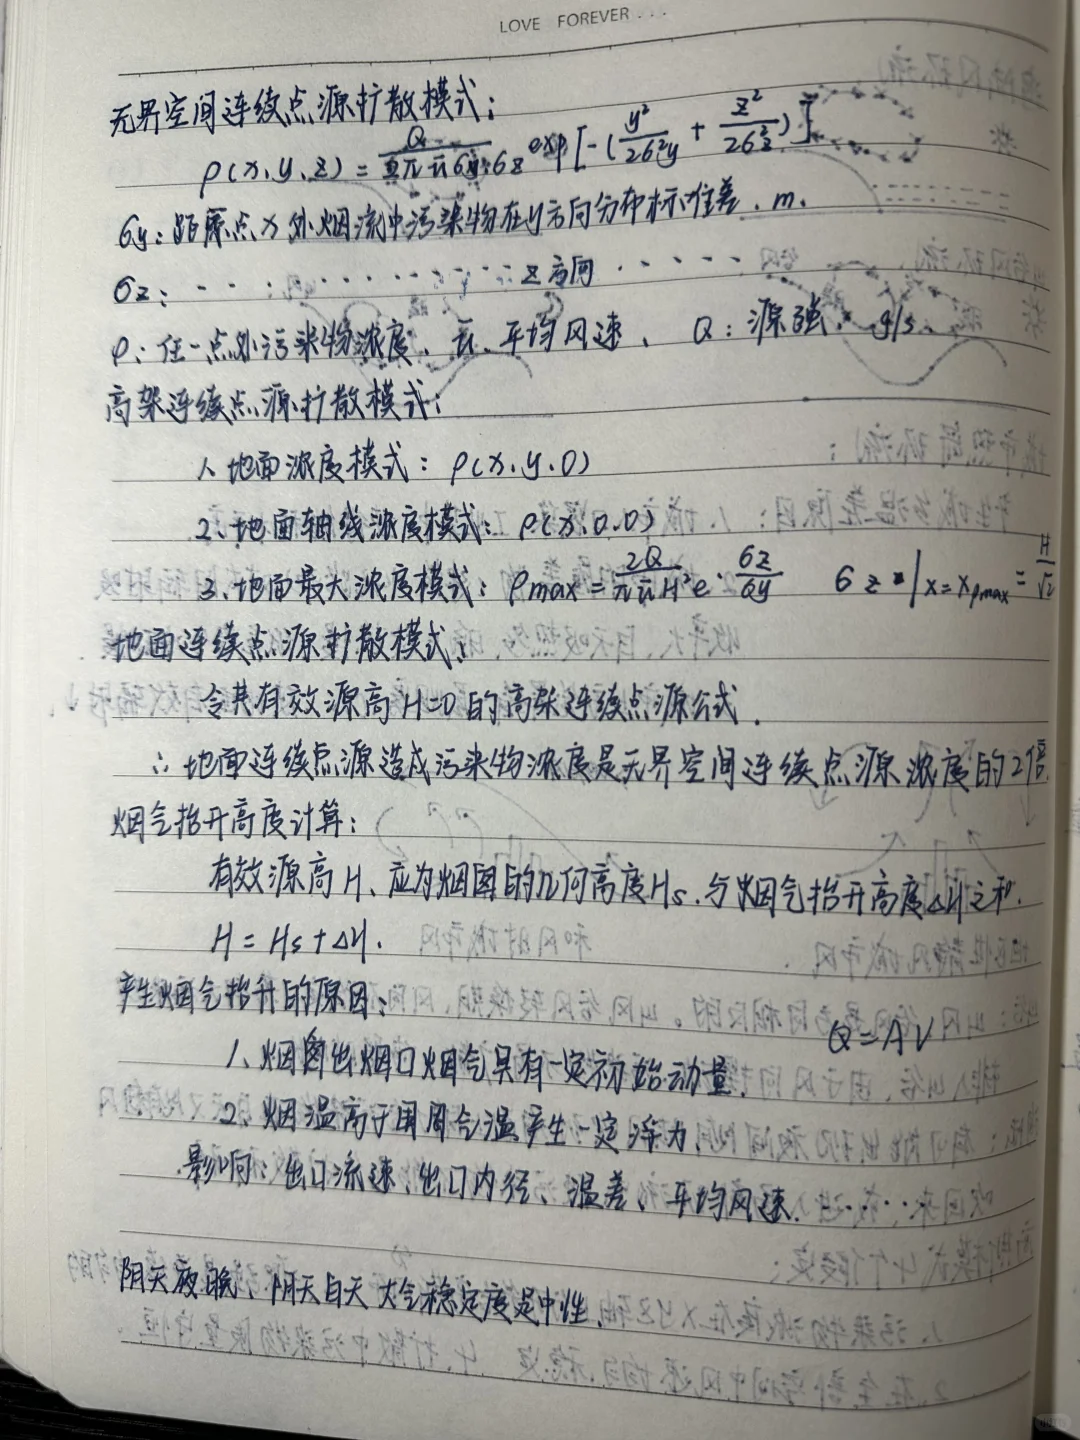 LOVE FOREVER . . .
无界空间连续点源扩散模式：
ρ(x、y、z) = Q / 2π ū 6y·6z exp[-(y²/26²y + z²/26²z)]
6y：距原点x处烟流中污染物在y方向分布标准差．m．
6z：· · · · · · · · · · z方向 · · · · ·
ρ：任一点处污染物浓度、ū、平均风速、 Q：源强． g/s．
高架连续点源扩散模式：
1、地面浓度模式：ρ(x、y、0)
2、地面轴线浓度模式：ρ(x、0、0)
3、地面最大浓度模式：ρmax = 2Q / πūH²e · 6z / 6y 6z | x=xρmax = H/√2
地面连续点源扩散模式：
令其有效源高H=0的高架连续点源公式．
∴地面连续点源造成污染物浓度是无界空间连续点源浓度的2倍
烟气抬升高度计算：
有效源高H、应为烟囱的几何高度Hs．与烟气抬升高度△H之和．
H = Hs + △H．
产生烟气抬升的原因：
Q = A V
1、烟囱出烟口烟气具有一定初始动量．
2、烟温高于周围气温产生一定浮力．
影响：出口流速、出口内径、温差、平均风速．······
阴天夜晚、阴天白天大气稳定度是中性．